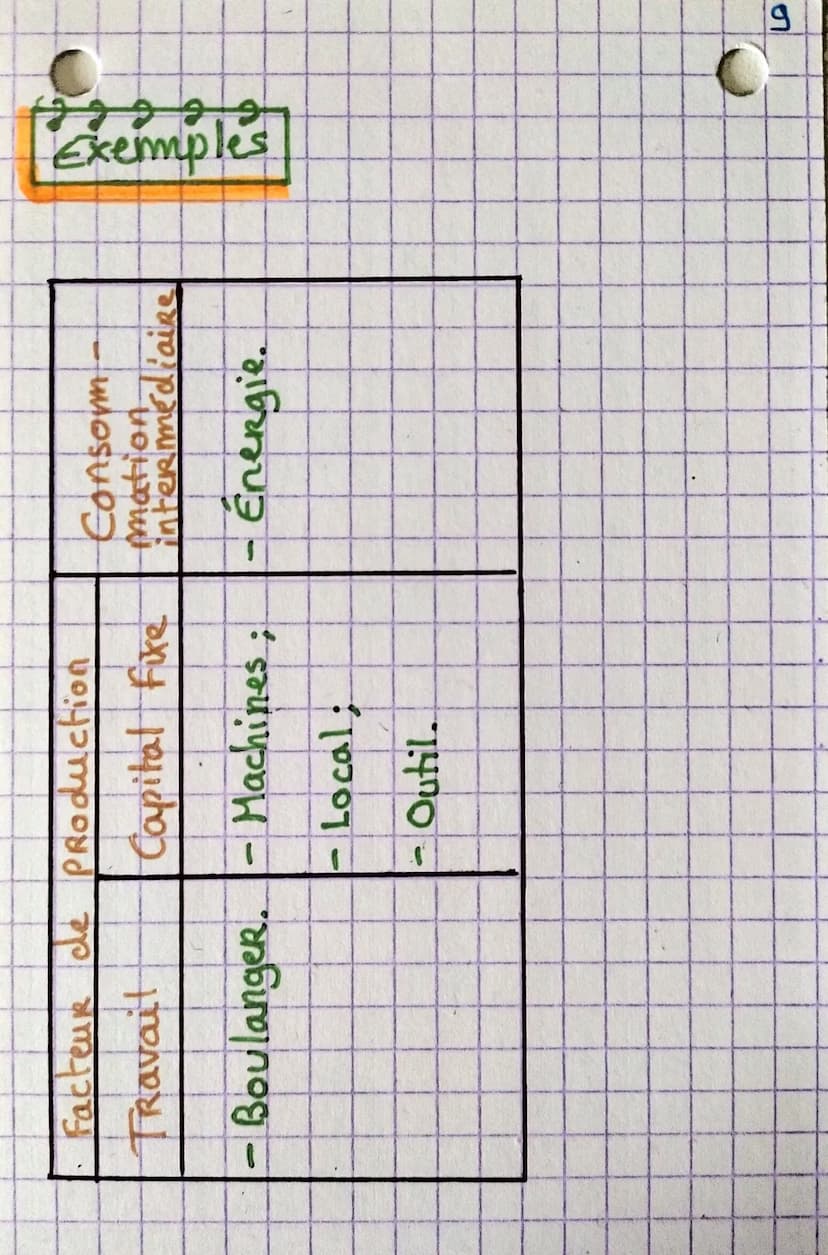 9
Exemples
Facteur de production
Travail
Capital fixe
Consom-
mation
intermédiaire
- Boulanger.
- Machines;
- Local;
- Outil.
- Énergie.